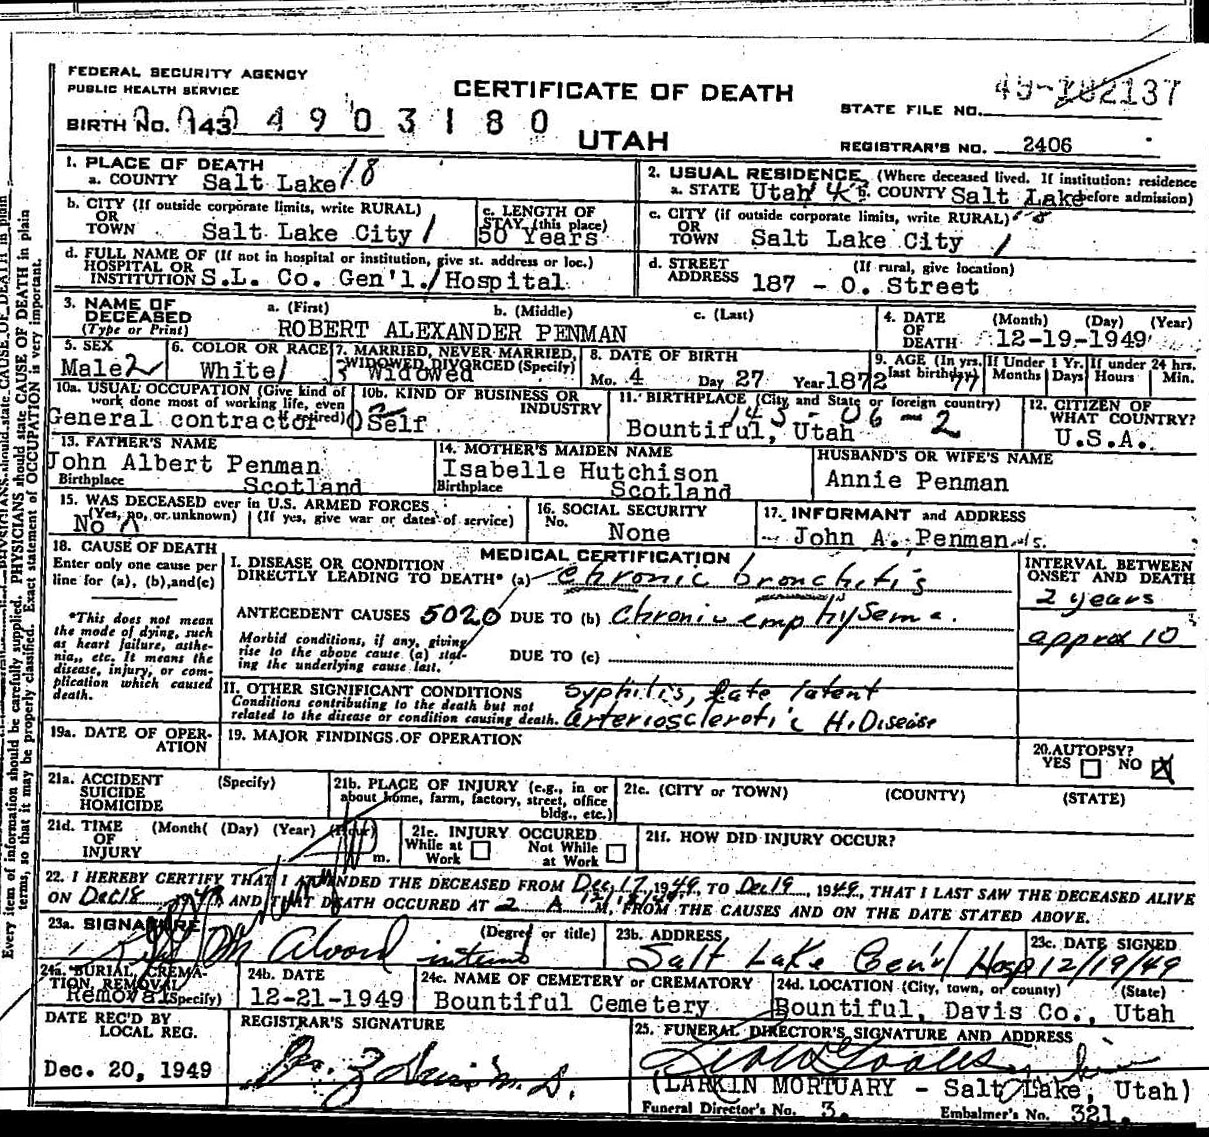 FEDERAL SECURITY AGENCY
PUBLIC HEALTH SERVICE
CERTIFICATE OF DEATH
STATE FILE NO.
BIRTH No. 143 4903180
UTAH
REGISTRAR'S NO. 2406
1. PLACE OF DEATH
a. COUNTY Salt Lake 18
2. USUAL RESIDENCE (Where deceased lived. If institution: residence before admission)
a. STATE Utah b. COUNTY Salt Lake
b. CITY (If outside corporate limits, write RURAL)
OR
TOWN Salt Lake City
c. LENGTH OF STAY (this place)
50 Years
c. CITY (if outside corporate limits, write RURAL)
OR
TOWN Salt Lake City
d. FULL NAME OF (If not in hospital or institution, give st. address or loc.)
HOSPITAL OR
INSTITUTION S.L. Co. Gen'l. Hospital
d. STREET (If rural, give location)
ADDRESS 187 - O. Street
3. NAME OF DECEASED (Type or Print)
a. (First) b. (Middle) c. (Last)
ROBERT ALEXANDER PENMAN
4. DATE OF DEATH (Month) (Day) (Year)
12-19-1949
5. SEX
Male 2
6. COLOR OR RACE
White
7. MARRIED, NEVER MARRIED, WIDOWED, DIVORCED (Specify)
3 Widowed
8. DATE OF BIRTH
Mo. 4 Day 27 Year 1872
9. AGE (In yrs. last birthday) 77
If Under 1 Yr. Months Days
If under 24 hrs. Hours Min.
10a. USUAL OCCUPATION (Give kind of work done most of working life, even if retired)
General contractor
10b. KIND OF BUSINESS OR INDUSTRY
Self
11. BIRTHPLACE (City and State or foreign country)
143 - 06 - 2
Bountiful, Utah
12. CITIZEN OF WHAT COUNTRY?
U.S.A.
13. FATHER'S NAME
John Albert Penman
Birthplace Scotland
14. MOTHER'S MAIDEN NAME
Isabelle Hutchison
Birthplace Scotland
HUSBAND'S OR WIFE'S NAME
Annie Penman
15. WAS DECEASED ever in U.S. ARMED FORCES
(Yes, no, or unknown) (If yes, give war or dates of service)
No
16. SOCIAL SECURITY No.
None
17. INFORMANT and ADDRESS
John A. Penman
18. CAUSE OF DEATH
Enter only one cause per line for (a), (b), and (c)
*This does not mean the mode of dying, such as heart failure, asthenia, etc. It means the disease, injury, or complication which caused death.
MEDICAL CERTIFICATION
I. DISEASE OR CONDITION
DIRECTLY LEADING TO DEATH* (a) Chronic bronchitis
INTERVAL BETWEEN ONSET AND DEATH
2 years
ANTECEDENT CAUSES 5020 DUE TO (b) Chronic emphysema.
approx 10
Morbid conditions, if any, giving rise to the above cause (a) stating the underlying cause last.
DUE TO (c)
II. OTHER SIGNIFICANT CONDITIONS
Conditions contributing to the death but not related to the disease or condition causing death.
Syphilis, late latent
arteriosclerotic H. Disease
19a. DATE OF OPERATION
19. MAJOR FINDINGS OF OPERATION
20. AUTOPSY?
YES NO X
21a. ACCIDENT SUICIDE HOMICIDE (Specify)
21b. PLACE OF INJURY (e.g., in or about home, farm, factory, street, office bldg., etc.)
21c. (CITY or TOWN) (COUNTY) (STATE)
21d. TIME OF INJURY (Month) (Day) (Year) (Hour) m.
21e. INJURY OCCURED
While at Work Not While at Work
21f. HOW DID INJURY OCCUR?
22. I HEREBY CERTIFY THAT I ATTENDED THE DECEASED FROM Dec. 17, 1949, TO Dec 19, 1949, THAT I LAST SAW THE DECEASED ALIVE
ON Dec 18 1949 AND THAT DEATH OCCURED AT 2 A M, FROM THE CAUSES AND ON THE DATE STATED ABOVE.
23a. SIGNATURE (Degree or title)
Alvord intern
23b. ADDRESS
Salt Lake Gen'l Hosp
23c. DATE SIGNED
12/19/49
24a. BURIAL, CREMATION, REMOVAL (Specify)
Removal
24b. DATE
12-21-1949
24c. NAME OF CEMETERY or CREMATORY
Bountiful Cemetery
24d. LOCATION (City, town, or county) (State)
Bountiful, Davis Co., Utah
DATE REC'D BY LOCAL REG.
Dec. 20, 1949
REGISTRAR'S SIGNATURE
M.D.
25. FUNERAL DIRECTOR'S SIGNATURE AND ADDRESS
(LARKIN MORTUARY - Salt Lake, Utah)
Funeral Director's No. 3. Embalmer's No. 321.
Every item of information should be carefully supplied. PHYSICIANS should state CAUSE OF DEATH in plain
terms, so that it may be properly classified. Exact statement of OCCUPATION is very important.